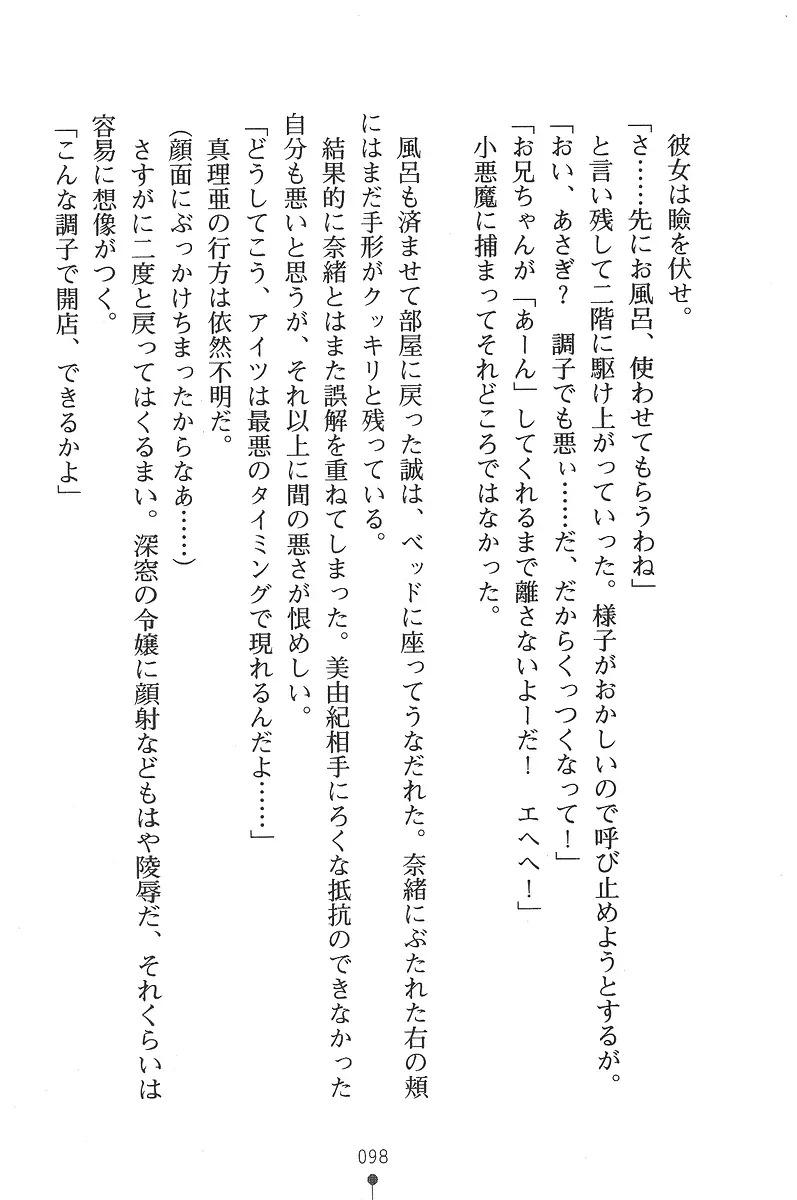 彼女は瞼を伏せ。
「さ……先にお風呂、使わせてもらうわね」
と言い残して二階に駆け上がっていった。様子がおかしいので呼び止めようとするが。
「おい、あさぎ？　調子でも悪ぃ……だ、だからくっつくなって！」
「お兄ちゃんが「あーん」してくれるまで離さないよーだ！　エヘヘ！」
小悪魔に捕まってそれどころではなかった。
風呂も済ませて部屋に戻った誠は、ベッドに座ってうなだれた。奈緒にぶたれた右の頬
にはまだ手形がクッキリと残っている。
結果的に奈緒とはまた誤解を重ねてしまった。美由紀相手にろくな抵抗のできなかった
自分も悪いと思うが、それ以上に間の悪さが恨めしい。
「どうしてこう、アイツは最悪のタイミングで現れるんだよ……」
真理亜の行方は依然不明だ。
（顔面にぶっかけちまったからなぁ……）
さすがに二度と戻ってはくるまい。深窓の令嬢に顔射などもはや陵辱だ、それくらいは
容易に想像がつく。
「こんな調子で開店、できるかよ」
098